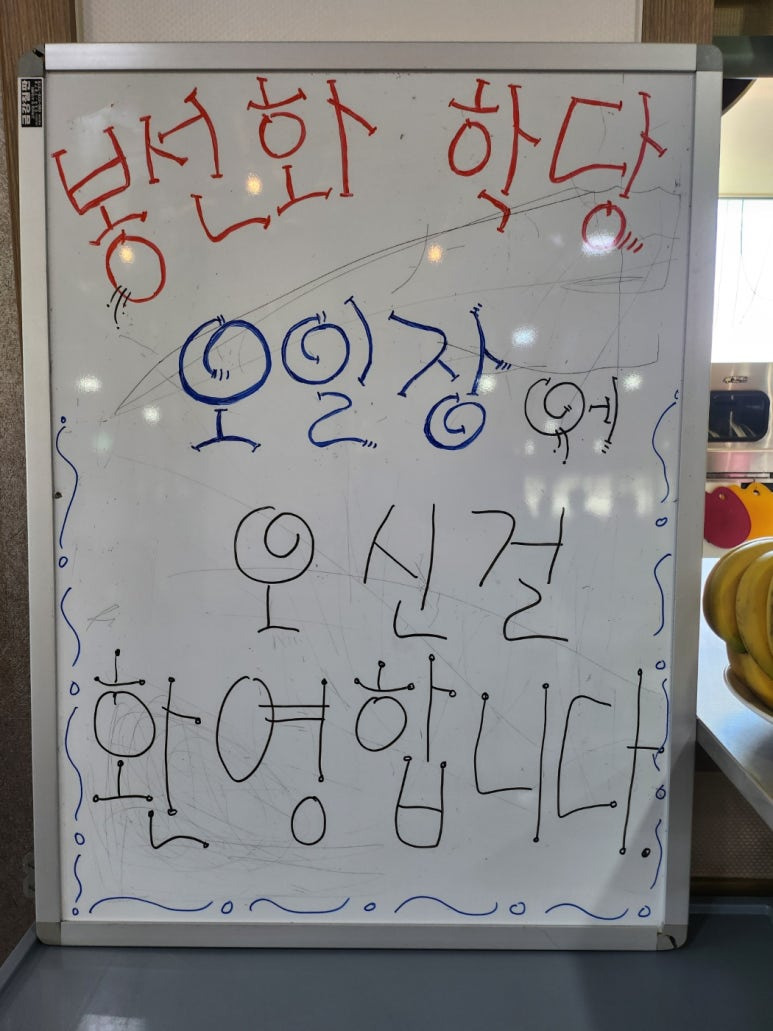 봉선화 학당
오일장에
오신걸
환영합니다.